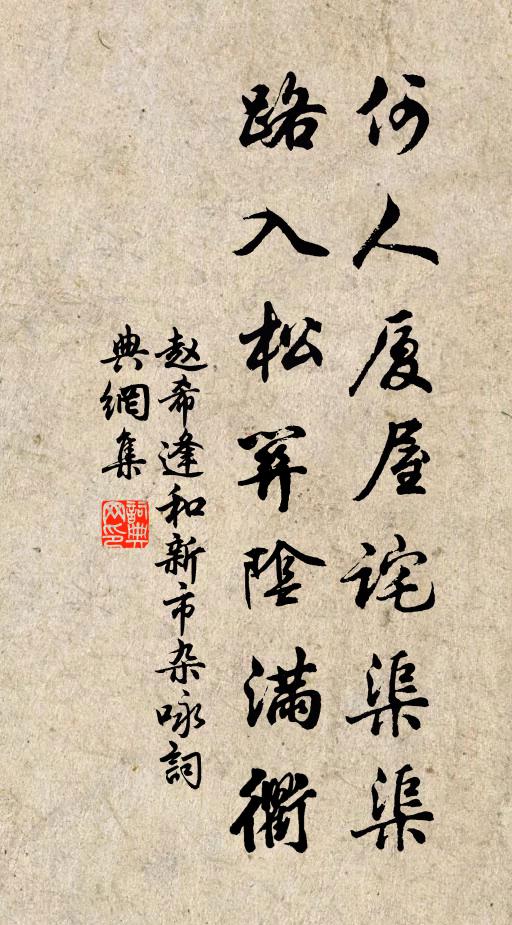 何人厦屋詫渠渠
路入松陰滿衢
赵希逢和新市杂咏詞
典網集
詞典
网印